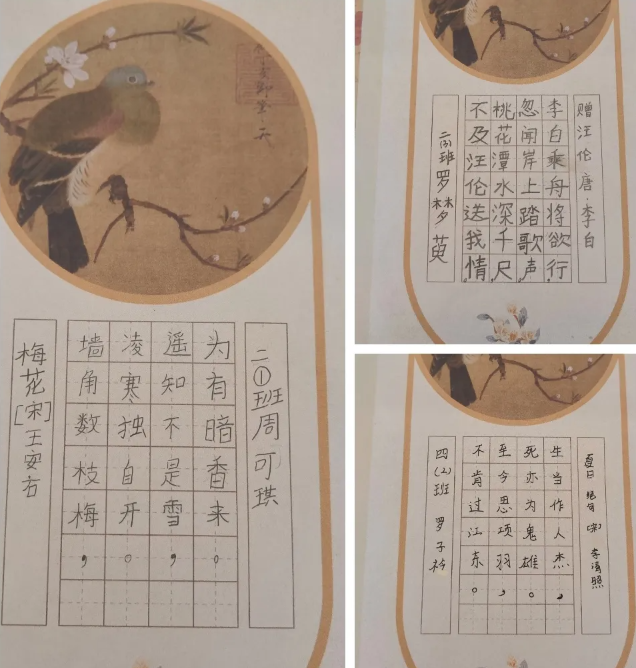 梅花[宋]王安石
墙角数枝梅，
凌寒独自开。
遥知不是雪，
为有暗香来。
二①班周可琪
赠汪伦 唐·李白
李白乘舟将欲行，
忽闻岸上踏歌声。
桃花潭水深千尺，
不及汪伦送我情。
二(3)班 罗梦萸
夏日绝句 (宋) 李清照
生当作人杰，
死亦为鬼雄。
至今思项羽，
不肯过江东。
四(2)班 罗子衿